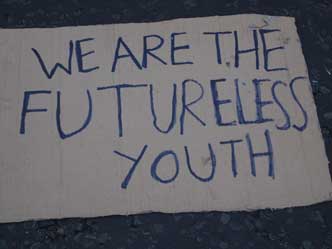 WE ARE THE
FUTURELESS
YOUTH